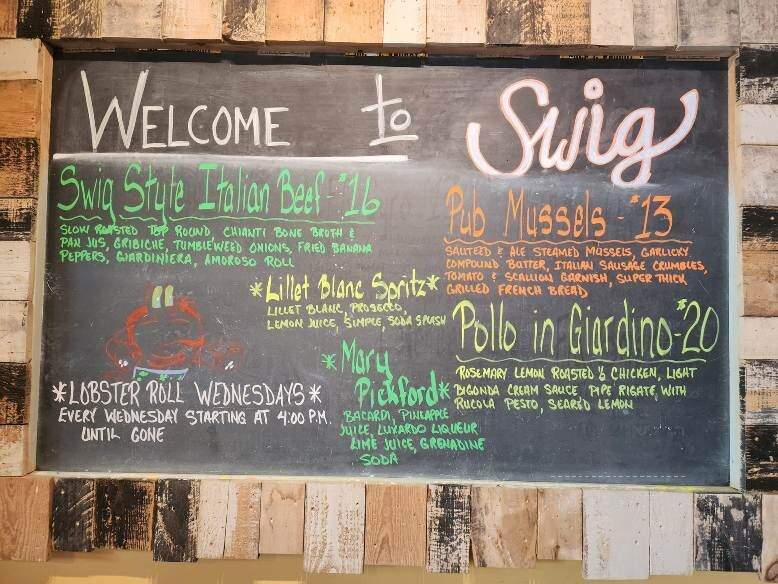 WELCOME to Swig
Swig Style Italian Beef - $16
SLOW ROASTED TOP ROUND, CHIANTI BONE BROTH &
PAN JUS, GRIBICHE, TUMBLEWEED ONIONS, FRIED BANANA
PEPPERS, GIARDINIERA, AMOROSO ROLL
*Lillet Blanc Spritz*
LILLET BLANC, PROSECCO,
LEMON JUICE, SIMPLE, SODA SPLASH
*LOBSTER ROLL WEDNESDAYS*
EVERY WEDNESDAY STARTING AT 4:00 P.M.
UNTIL GONE
*Mary
Pickford*
BACARDI, PINEAPPLE
JUICE, LUXARDO LIQUEUR
LIME JUICE, GRENADINE
SODA
Pub Mussels - $13
SAUTEED & ALE STEAMED MUSSELS, GARLICKY
COMPOUND BUTTER, ITALIAN SAUSAGE CRUMBLES,
TOMATO & SCALLION GARNISH, SUPER THICK
GRILLED FRENCH BREAD
Pollo in Giardino - $20
ROSEMARY LEMON ROASTED ½ CHICKEN, LIGHT
BIGONDA CREAM SAUCE PIPE RIGATE, WITH
RUCOLA PESTO, SEARED LEMON